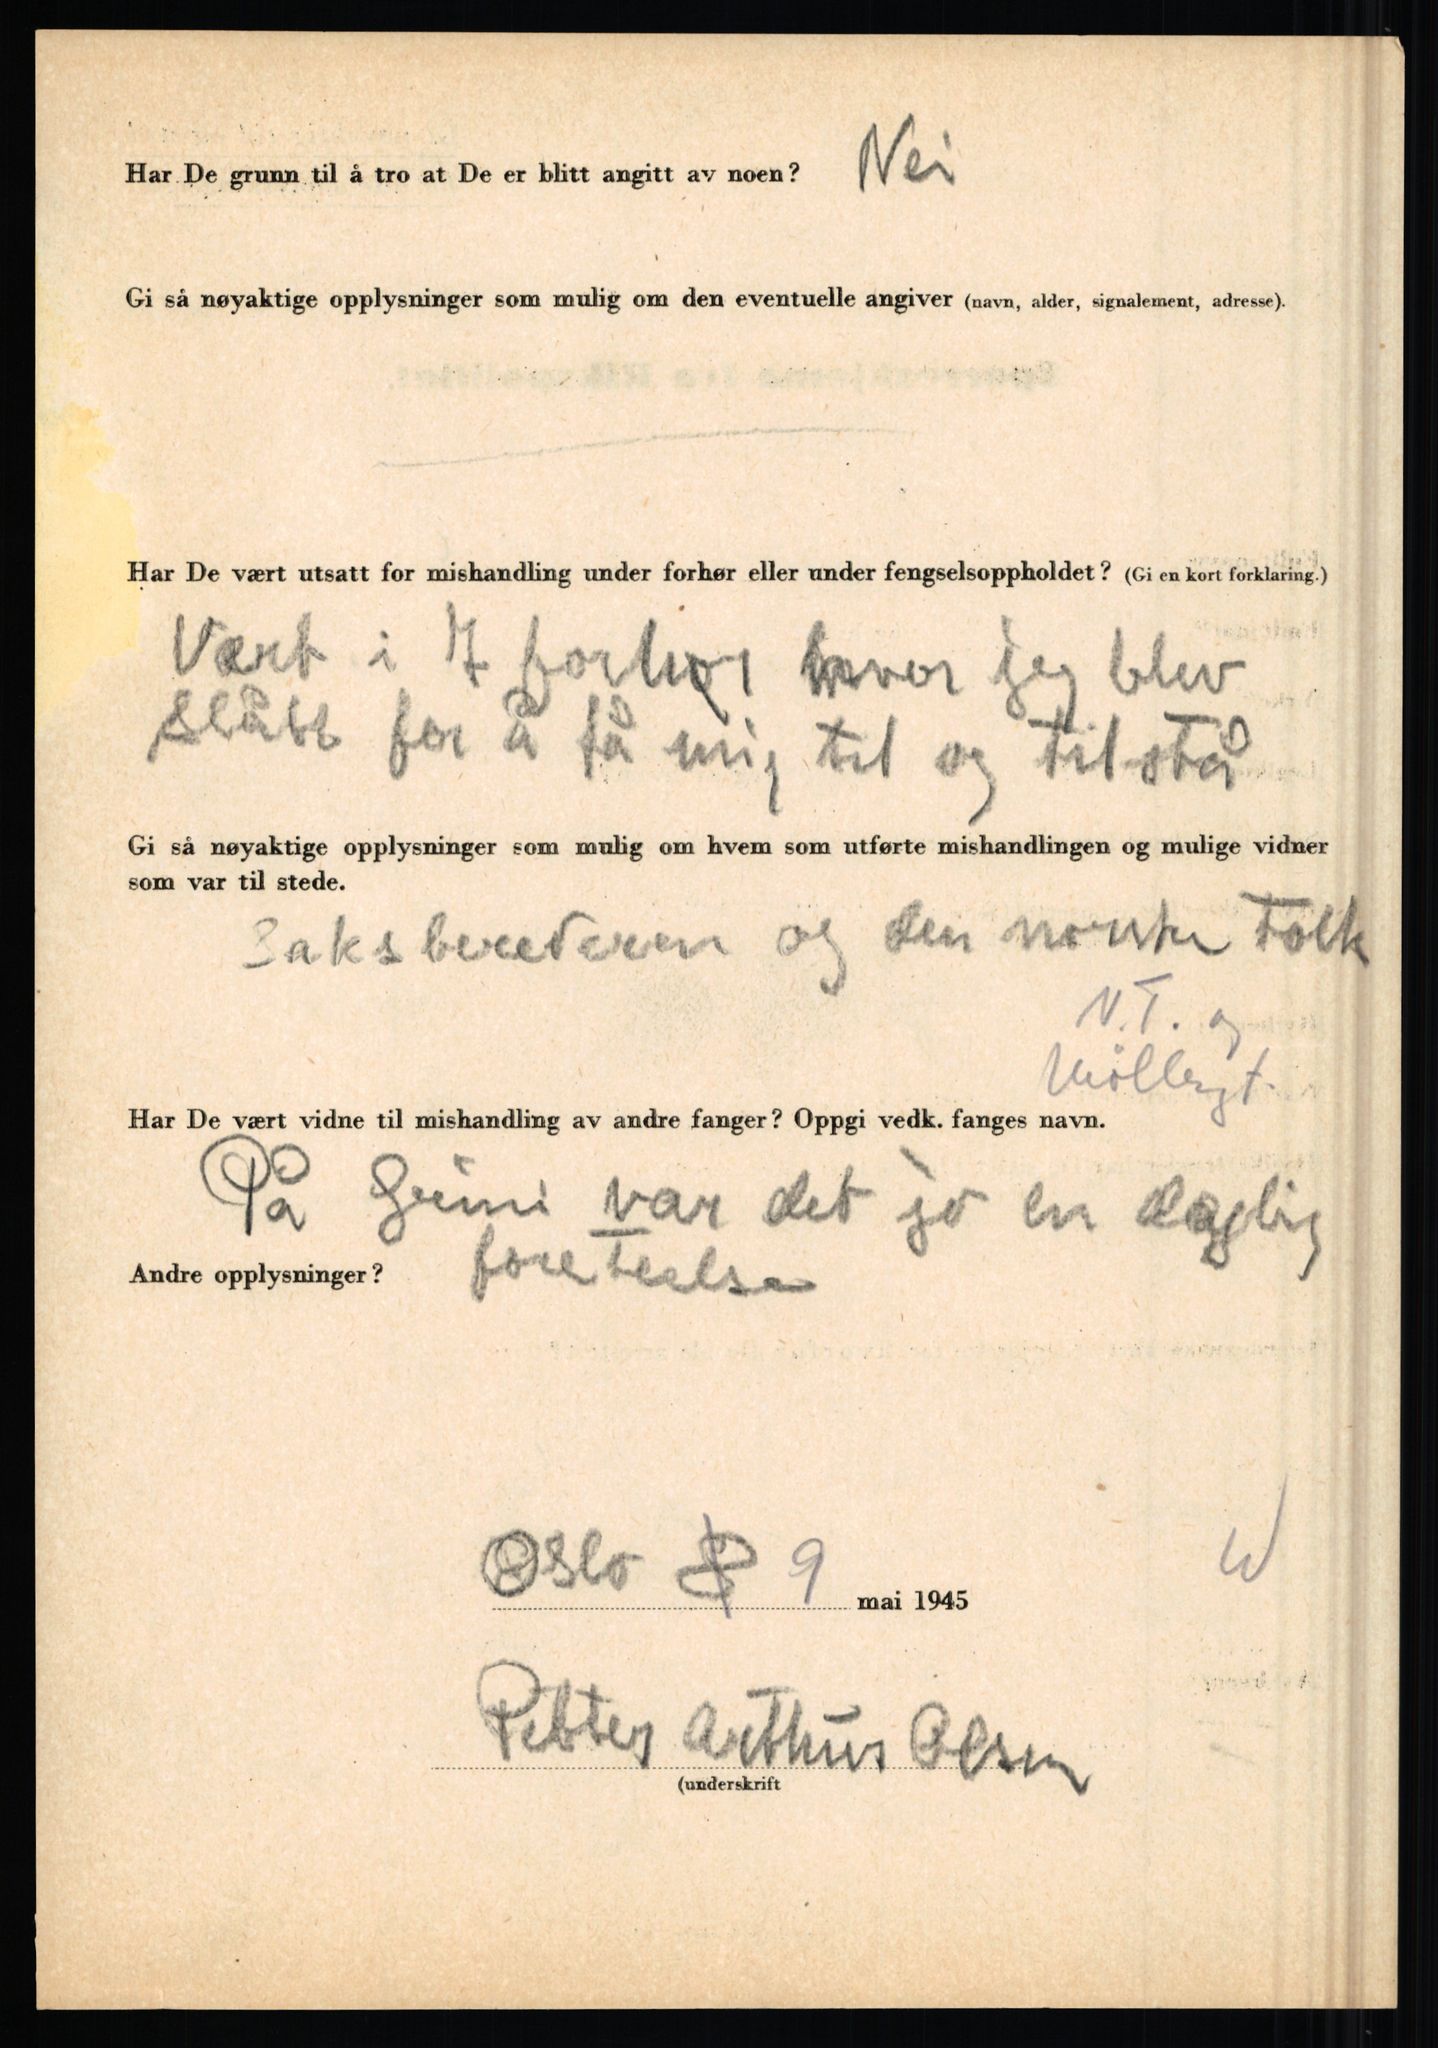 Har De grunn til å tro at De er blitt angitt av noen? Nei
Gi så nøyaktige opplysninger som mulig om den eventuelle angiver (navn, alder, signalement, adresse).
Har De vært utsatt for mishandling under forhør eller under fengselsoppholdet? (Gi en kort forklaring.)
Vært i 7 forhør hvor jeg blev
slått for å få mig til og tilstå
Gi så nøyaktige opplysninger som mulig om hvem som utførte mishandlingen og mulige vidner
som var til stede.
Saksberederen og den norske Tolk
N.T. og
Möllergt.
Har De vært vidne til mishandling av andre fanger? Oppgi vedk. fanges navn.
På Grini var det jo en daglig
foreteelse
Andre opplysninger?
Oslo 9 mai 1945
W
Petter Arthur Olsen
(underskrift